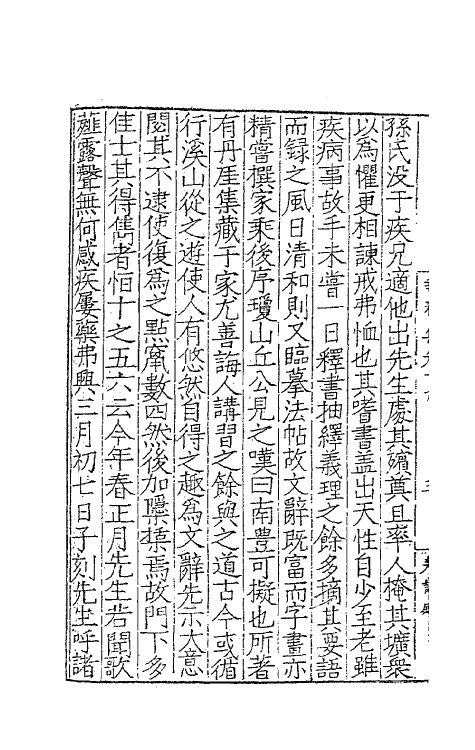 孫氏没于疾兄適他出先生處其殯奠且率人掩其壙衆
以為懼更相諫戒弗恤也其嗜書盖出天性自少至老雖
疾病事故手未嘗一日釋書抽繹義理之餘多摘其要語
而録之風日清和則又臨摹法帖故文辭既富而字畫亦
精嘗撰家乘後序瓊山丘公見之嘆曰南豊可擬也所著
有丹厓集藏于家尤善誨人講習之餘與之道古今或循
行溪山從之遊使人有悠然自得之趣為文辭先示大意
閱其不逮使復為之點竄數四然後加檃㮣焉故門下多
佳士其得雋者怕十之五六云今年春正月先生若聞歌
薤露聲無何感疾屢藥弗興三月初七日子刻先生呼諸